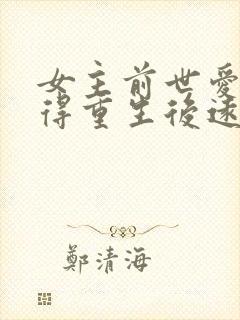 女主前世愛
得重生後遠
鄭清海